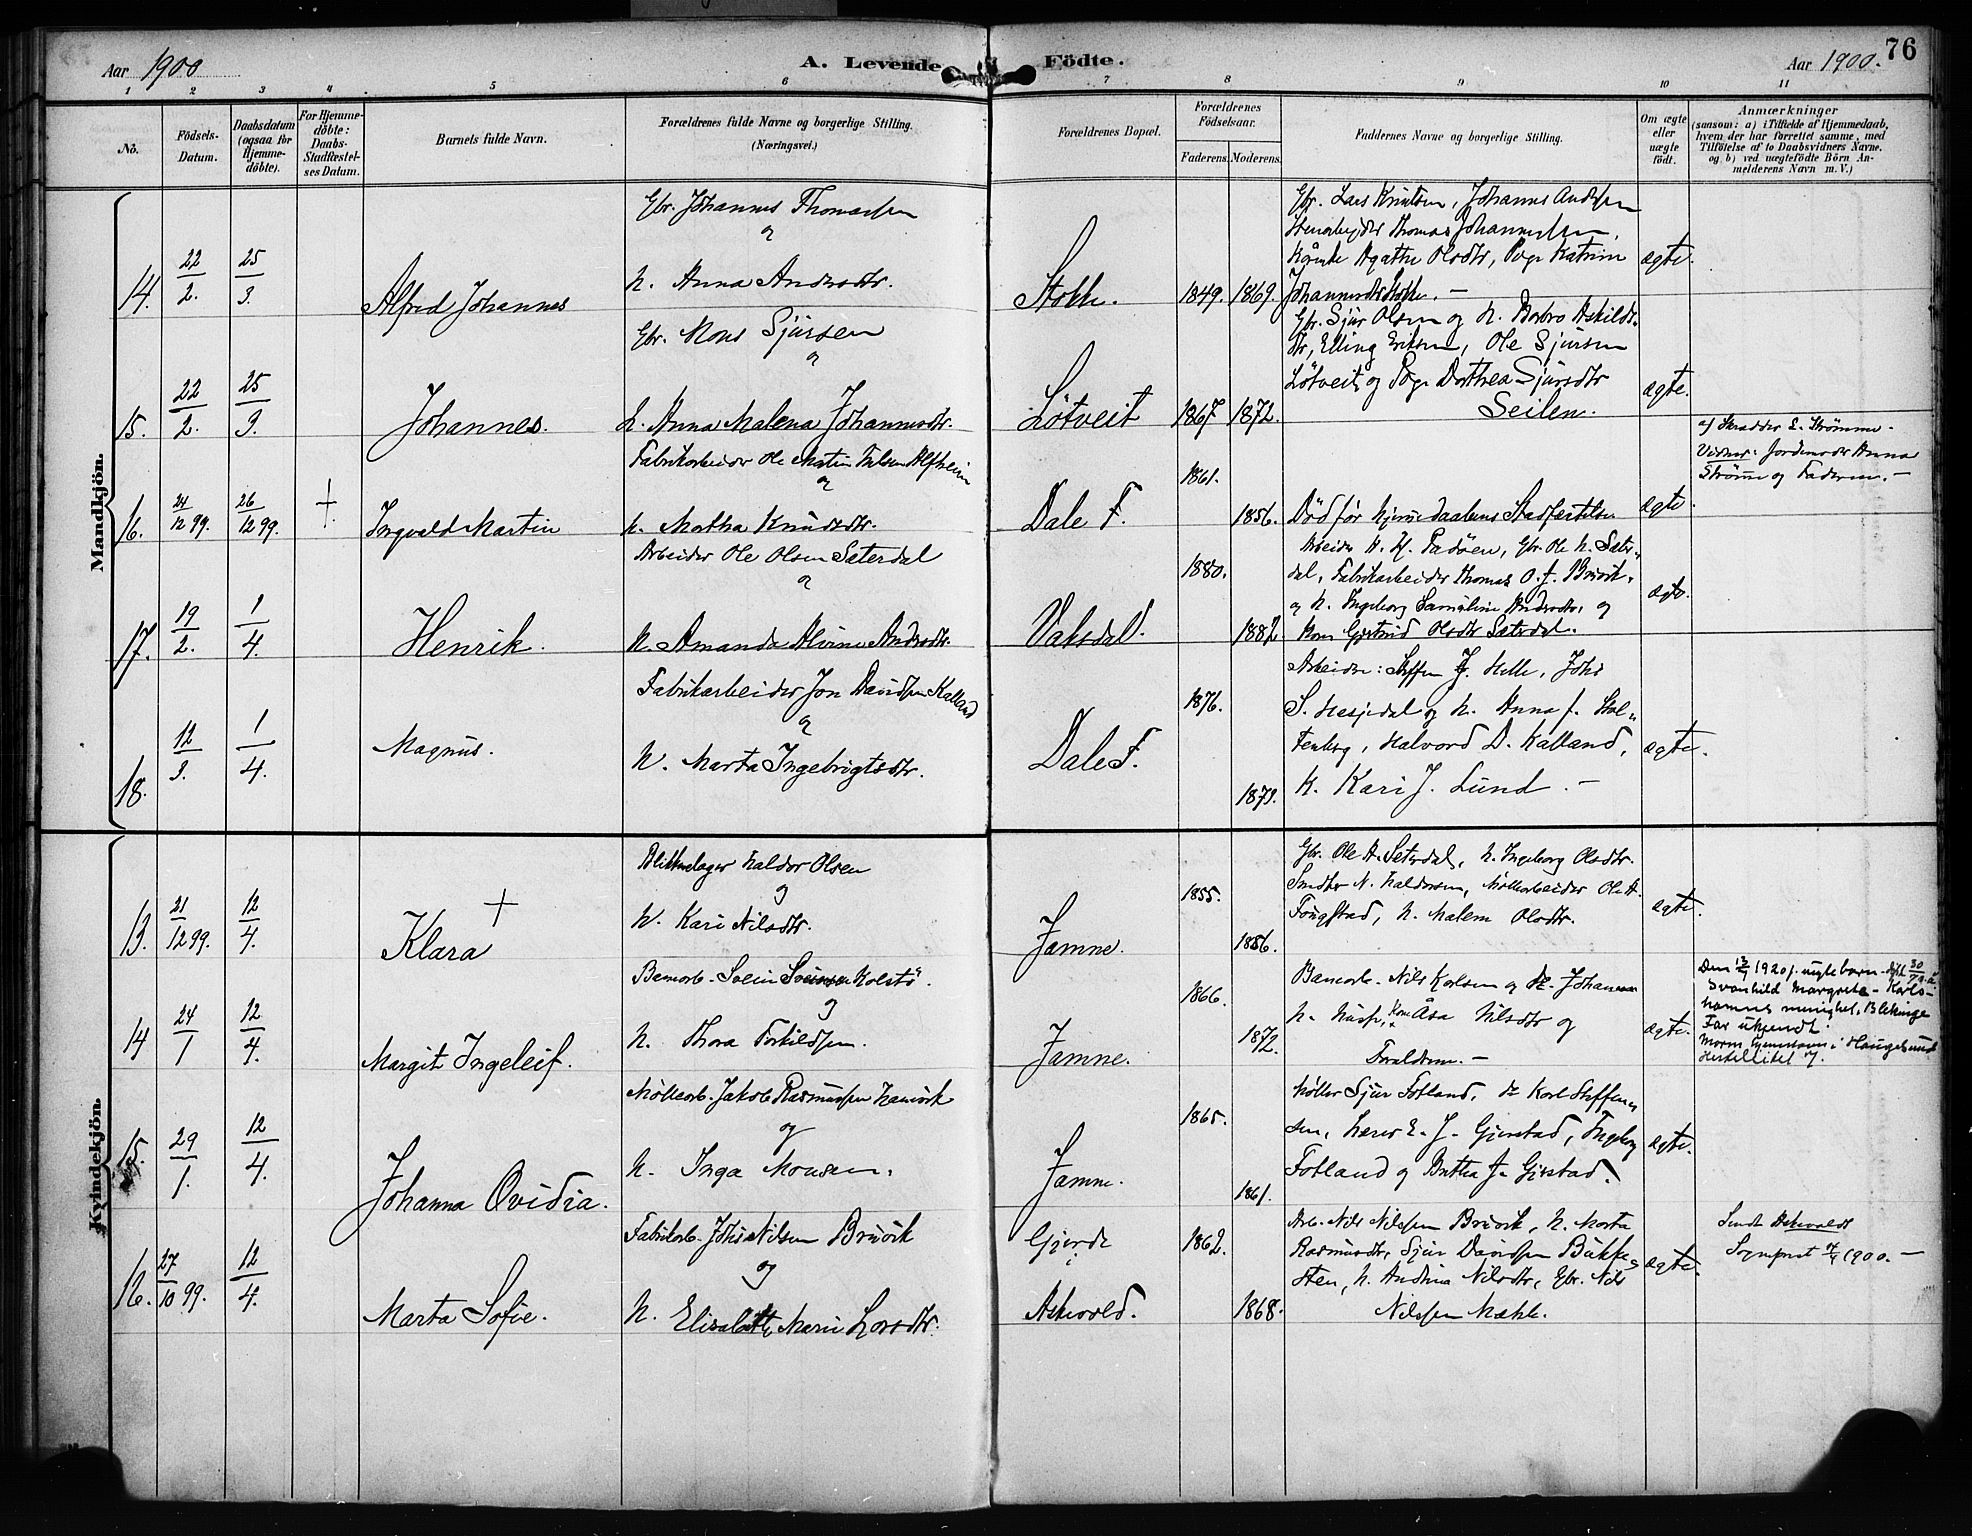 76
Aar 1900
A. Levende
Födte.
Aar 1900.
1 2 3 4 5 6 7 8 9 10 11
No.
Födsels-
Datum.
Daabsdatum
(ogsaa for
Hjemme-
døbte).
For Hjemme-
døbte:
Daabs-
Stadfæstel-
ses Datum.
Barnets fulde Navn.
Forældrenes fulde Navne og borgerlige Stilling.
(Næringsvei.)
Forældrenes Bopæl.
Forældrenes
Fødselsaar.
Faderens. Moderens.
Faddernes Navne og borgerlige Stilling.
Om ægte
eller
uægte
født.
Anmærkninger
(saasom: a) i Tilfælde af Hjemmedaab,
hvem der har forrettet samme, med
Tilføielse af to Daabsvidners Navne.
og b) ved uægtefødte Börn An-
melderens Navn m. V.)
Mandkjön.
14.
22/2.
25/3.
Alfred Johannes
Gbr. Johannes Thomassen
og
h. Anna Andersdtr.
Stokke.
1849. 1869.
Gbr. Lars Knutsen, Johannes Andersen
Thomas Johannessen,
Agathe Olsdtr, Pige Katrine
ægte.
15.
22/2.
25/3.
Johannes.
Gbr. Mons Sjursen
og
h. Anna Malena Johannesdtr.
Løtveit
1867 1872.
Gbr. Sjur Olsen og h. Barbro Askilds-
dtr, Elling Eriksen, Ole Sjursen
Løtveit, og Pige Dorthea Sjursdtr
Seilen.
ægte.
16.
24/12 99.
26/12 99.
+
Ingvald Martin
Fabrikarbeider Ole Martin Nilsen Alfheim
og
h. Martha Knudsdtr.
Dale F.
1861.
1856.
Død før hjemmedaabens Stadfæstelse
ægte
af Skrædder L. Strømme.
Vidner: Jordmoder Anna
Strømme og Faderen. –
17.
19/2.
1/4.
Henrik.
Arbeider Ole Olsen Sæterdal
og
h. Amanda Alvine Andersdtr.
Vaksdal.
1880.
1882
Arbeider Gbr. Ole N. Sæter-
dal, Fabrikarbeider Thomas O. J. Bruvik,
og h. Ingeborg Andersdtr, og
Kone Gjertrud Olsdtr Sæterdal.
ægte.
18.
12/3.
1/4.
Magnus.
Fabrikarbeider Jon Davidsen Kalland
og
h. Marta Ingebrigtsdtr.
Dale F.
1876.
1873.
Arbeidere: Steffen J. Helle, Johs
S. Hesjedal og h. Anna J. Stol-
tenberg, Halvord D. Kalland,
K. Kari J. Lund. –
ægte.
Kvindekjön.
13.
21/12 99.
12/4.
Klara +
Blikkenslager Haldor Olsen
og
h. Kari Nilsdtr.
Jamne.
1855.
1856.
Gbr. Ole A. Seterdal, h. Ingeborg Olsdtr.
Smed N. Haldorsen, Møllearbeider Ole A.
Fougstad, h. Malene Olsdtr.
ægte.
14
24/1
12/4.
Margit Ingeleif.
og
h. Thora Torkildsen.
Jamne.
1866.
1872.
Nils Karlsen og
Åsa Nilsdtr og
Forældrene. –
ægte.
Den 13/7 1920 f. uægte barn
Svanhild Margrete – Karls-
hamns menighet, Blekinge
Far ukjendt.
Haugesund
15.
29/1.
12/4.
Johanna Ovidia.
Møllearb. Jakob Rasmussen
og
h. Inga Monsen.
Jamne.
1865.
1861.
Møller Sjur Fotland, Karl Steffen-
sen, Lærer E. J. Gjerstad, Ingeborg
Fotland og Brita J. Gjerstad.
ægte.
16.
27/10 99.
12/4.
Marta Sofie.
Fabrikarb. Johs Nilsen Bruvik
og
h. Elisabeth Marie Larsdtr.
Gjerde
i
Askevold.
1862.
1868.
Arb. Nils Nilssen Bruvik, h. Marta
Rasmusdtr, Sjur Davidsen Bukke-
sten, h. Andrea Nilsdtr, Gbr. Nils
Nilssen
ægte.
Sendt Askevold
Sognepræst 1900. –